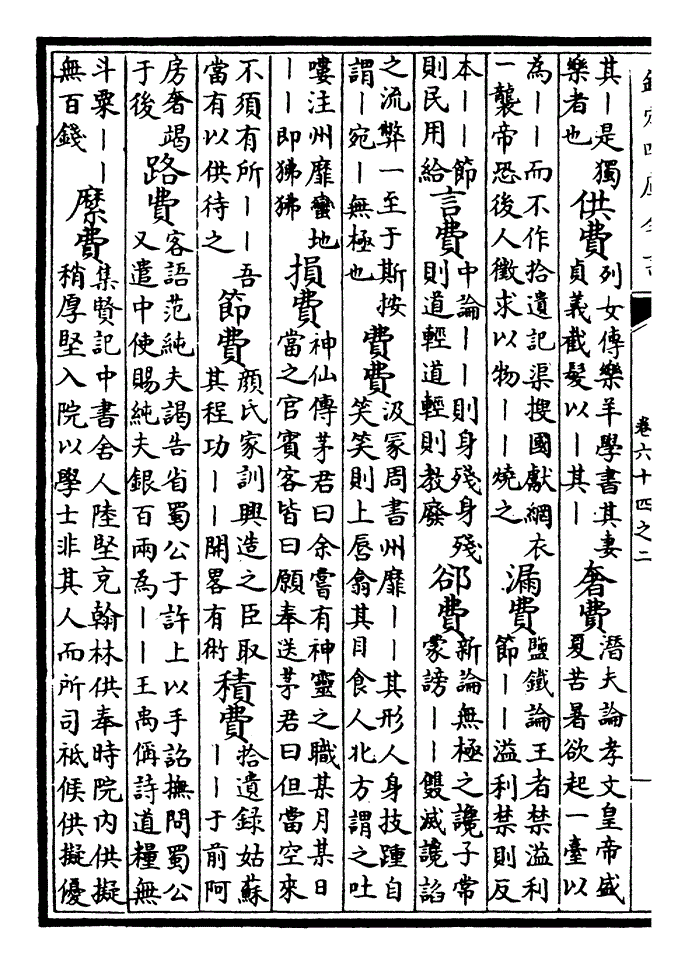 欽定四庫全書
卷六十四之二
其｜是獨樂者也 供費 列女傳樂羊學書其妻貞義截髮以｜其｜ 奢費 潛夫論孝文皇帝盛夏苦暑欲起一臺以
為｜｜而不作拾遺記渠搜國獻網衣一襲帝恐後人徵求以物｜｜燒之 漏費 鹽鐵論王者禁溢利節｜｜溢利禁則反
本｜｜節則民用給 言費 中論｜｜則身殘身殘則道輕道輕則教廢 郤費 新論無極之讒子常蒙謗｜｜雙滅讒諂
之流弊一至于斯按謂｜宛｜無極也 費費 汲冢周書州靡｜｜其形人身技踵自笑笑則上唇翕其目食人北方謂之吐
嘍注州靡蠻地｜｜即狒狒 損費 神仙傳茅君曰余嘗有神靈之職某月某日當之官賓客皆曰願奉送茅君曰但當空來
不須有所｜｜吾當有以供待之 節費 顏氏家訓興造之臣取其程功｜｜開畧有術 積費 拾遺錄姑蘇｜｜于前阿
房奢竭于後 路費 客語范純夫謁告省蜀公于許上以手詔撫問蜀公又遣中使賜純夫銀百兩為｜｜王禹偁詩道糧無
斗粟｜｜無百錢 縻費 集賢記中書舍人陸堅充翰林供奉時院內供擬稍厚堅入院以學士非其人而所司祗候供擬優